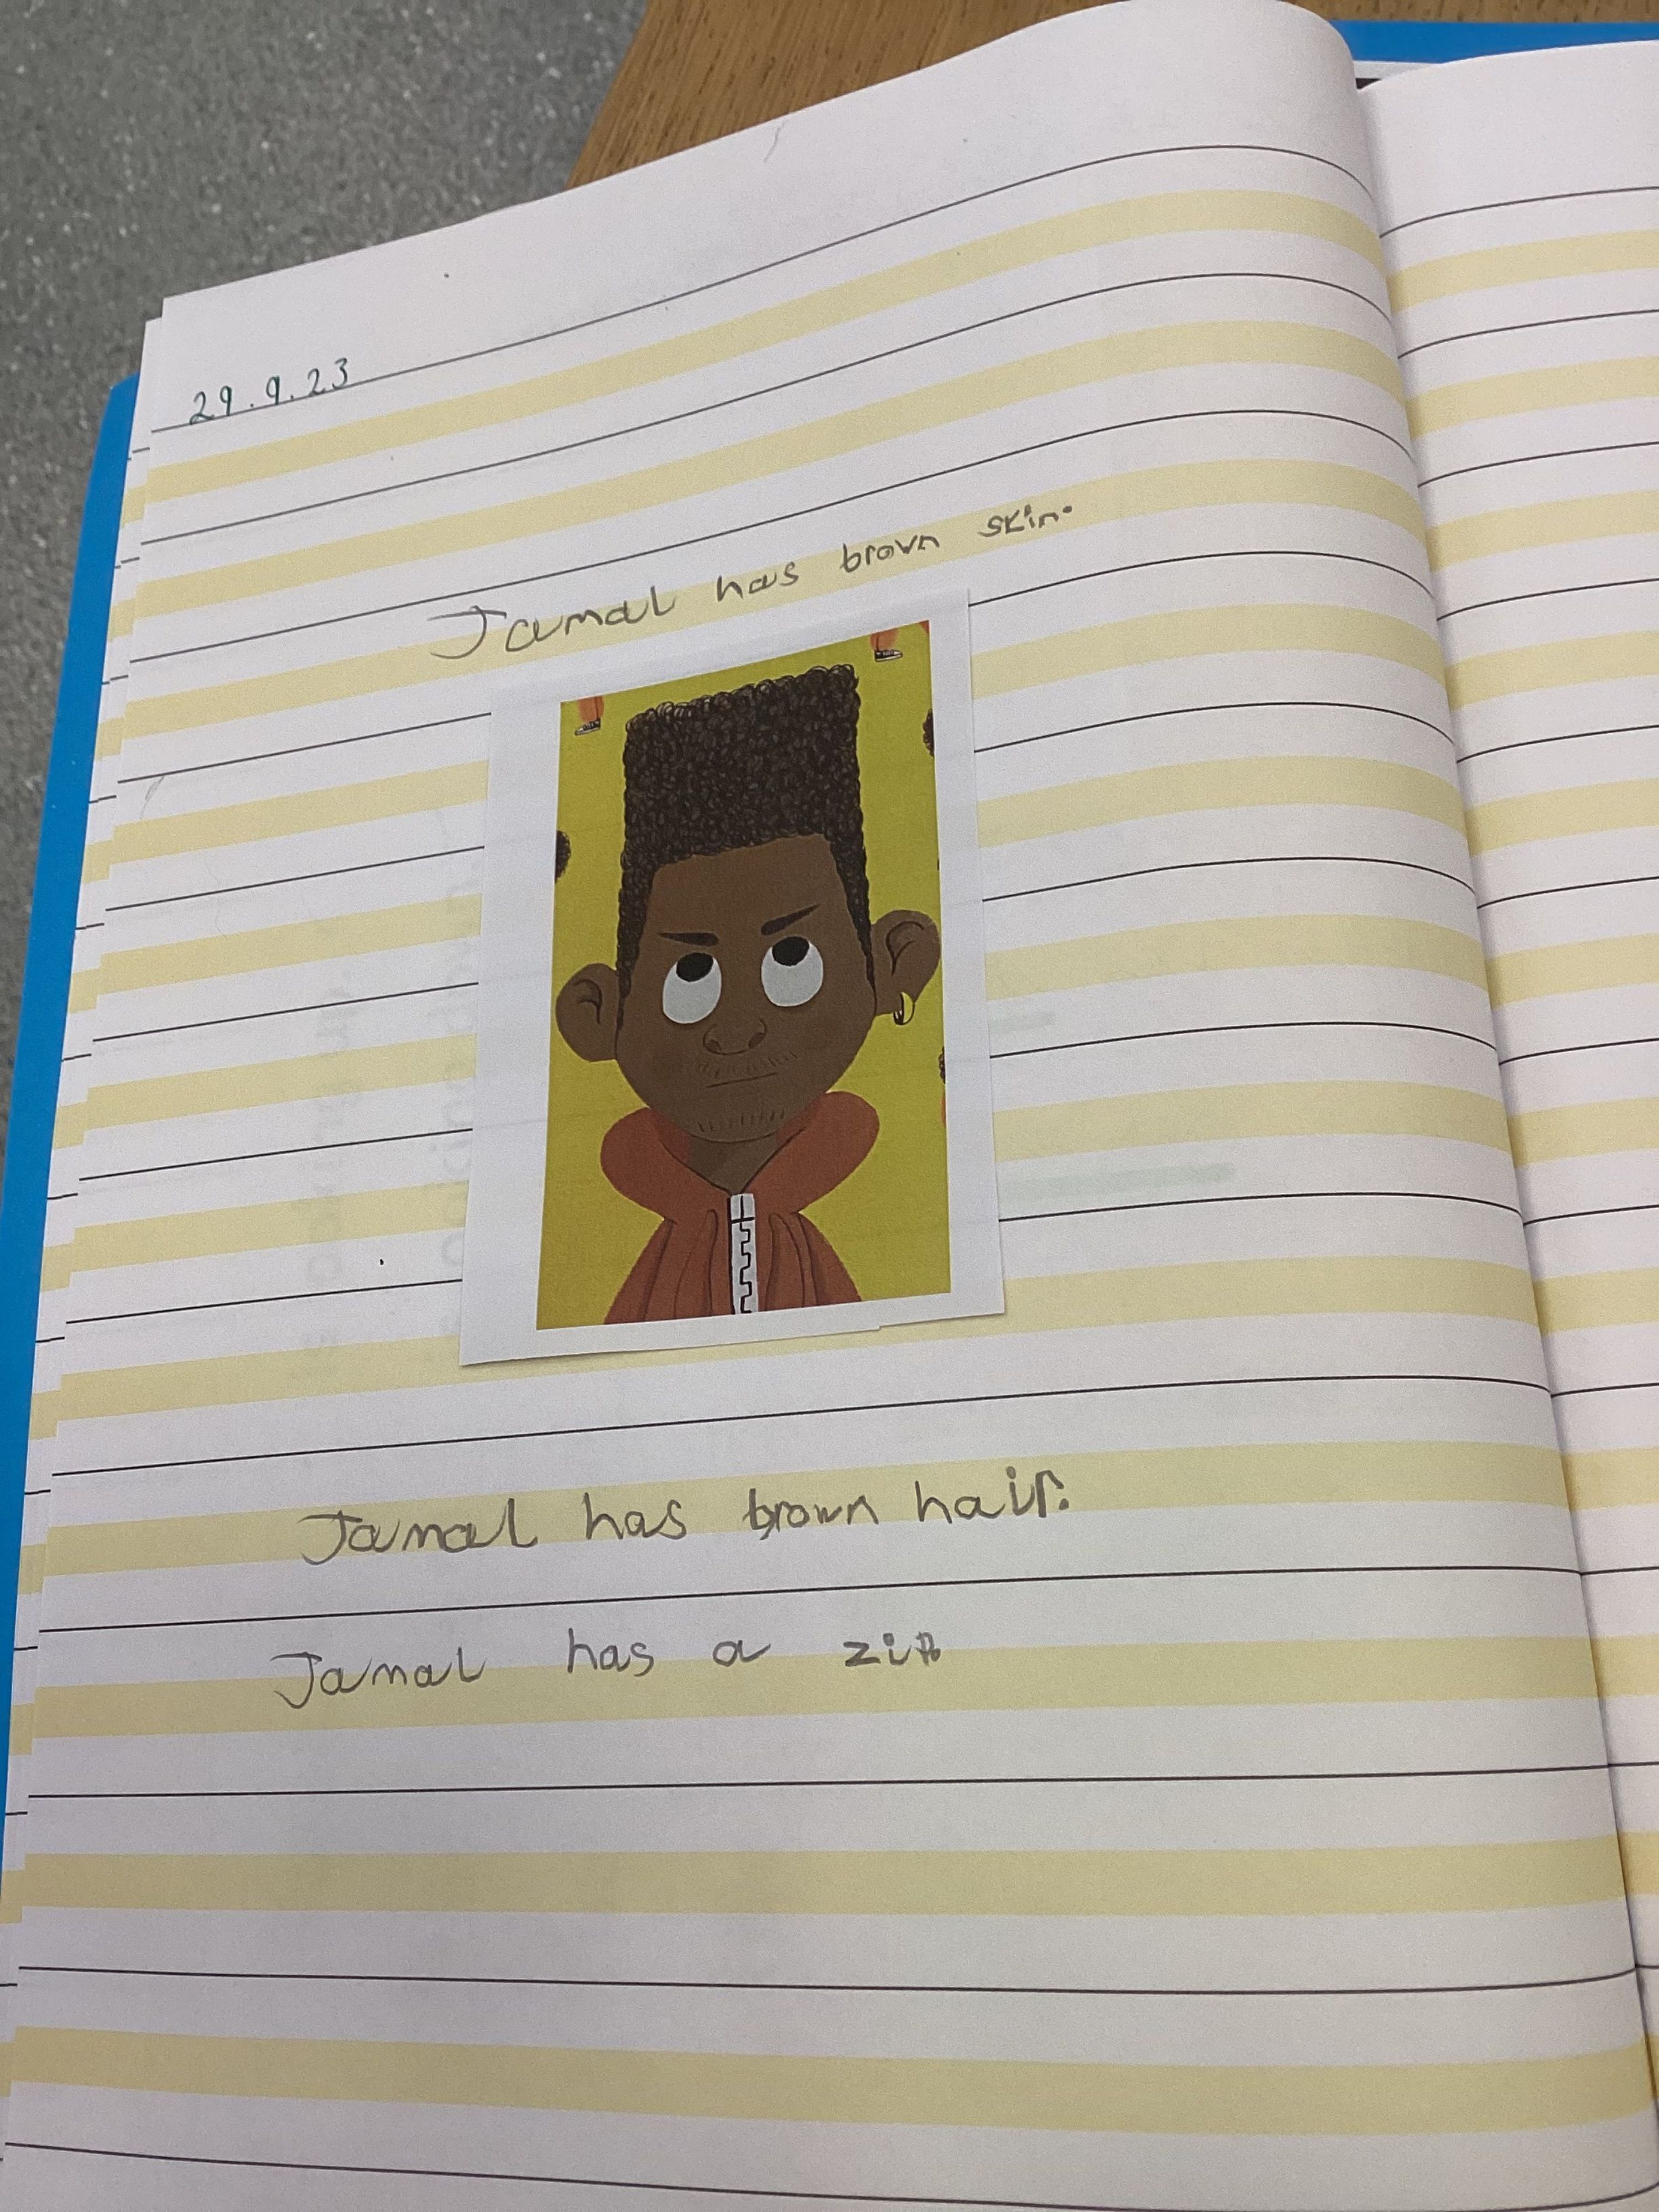 29.9.23
Jamal has brown skin.
Jamal has brown hair.
Jamal has a zip